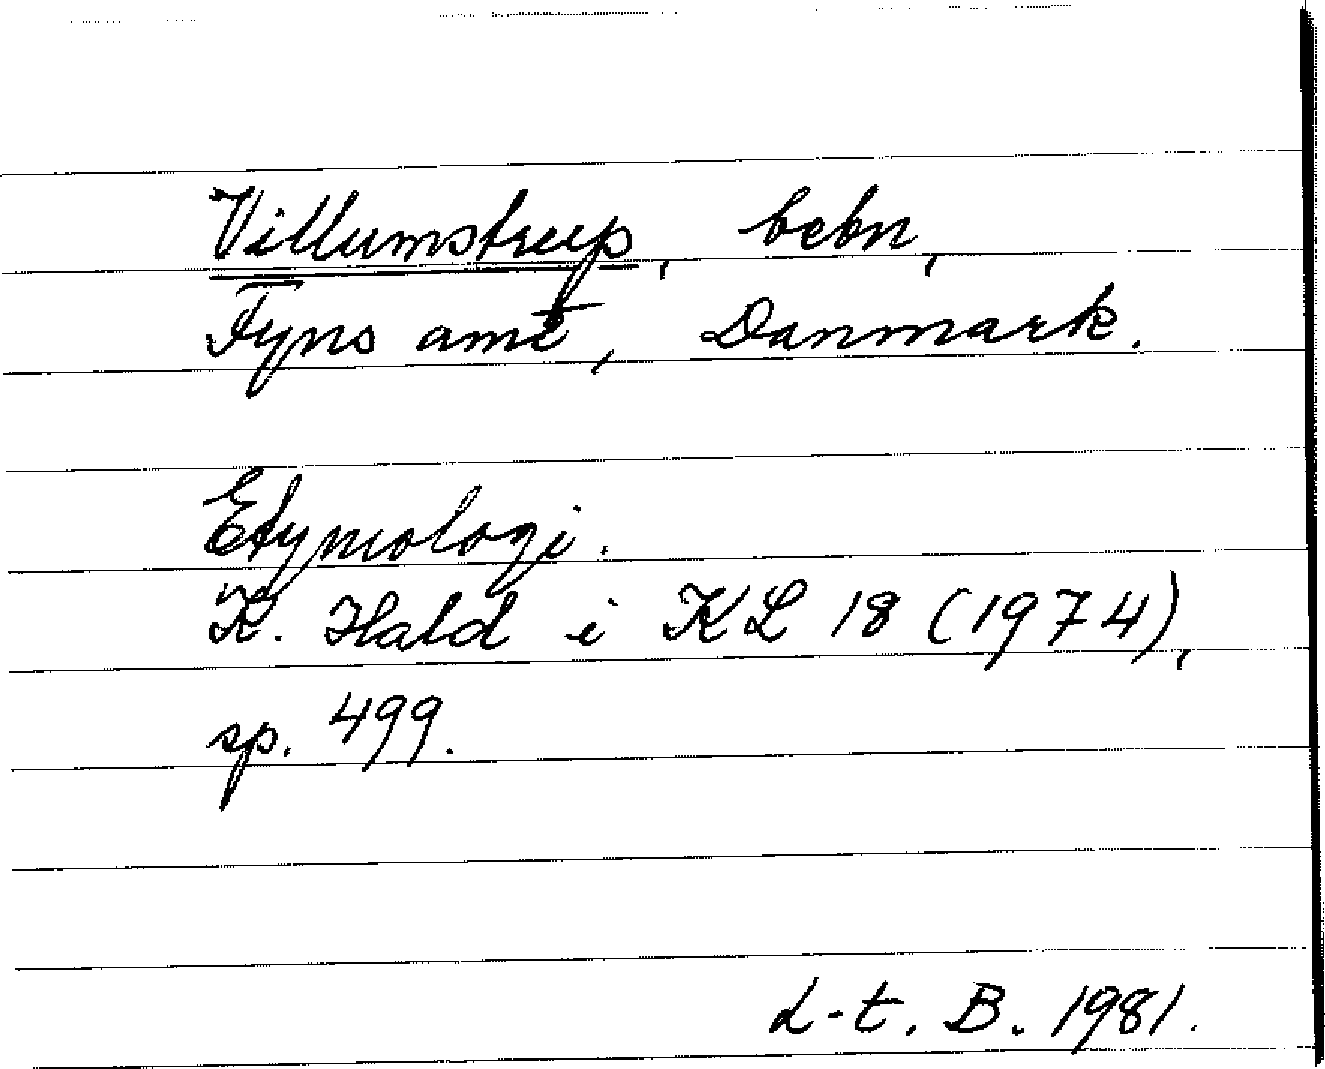 Villumstrup, bebn,
Fyns amt, Danmark.
Etymologi.
K. Hald i KL 18 (1974),
sp. 499.
L-t. B. 1981.